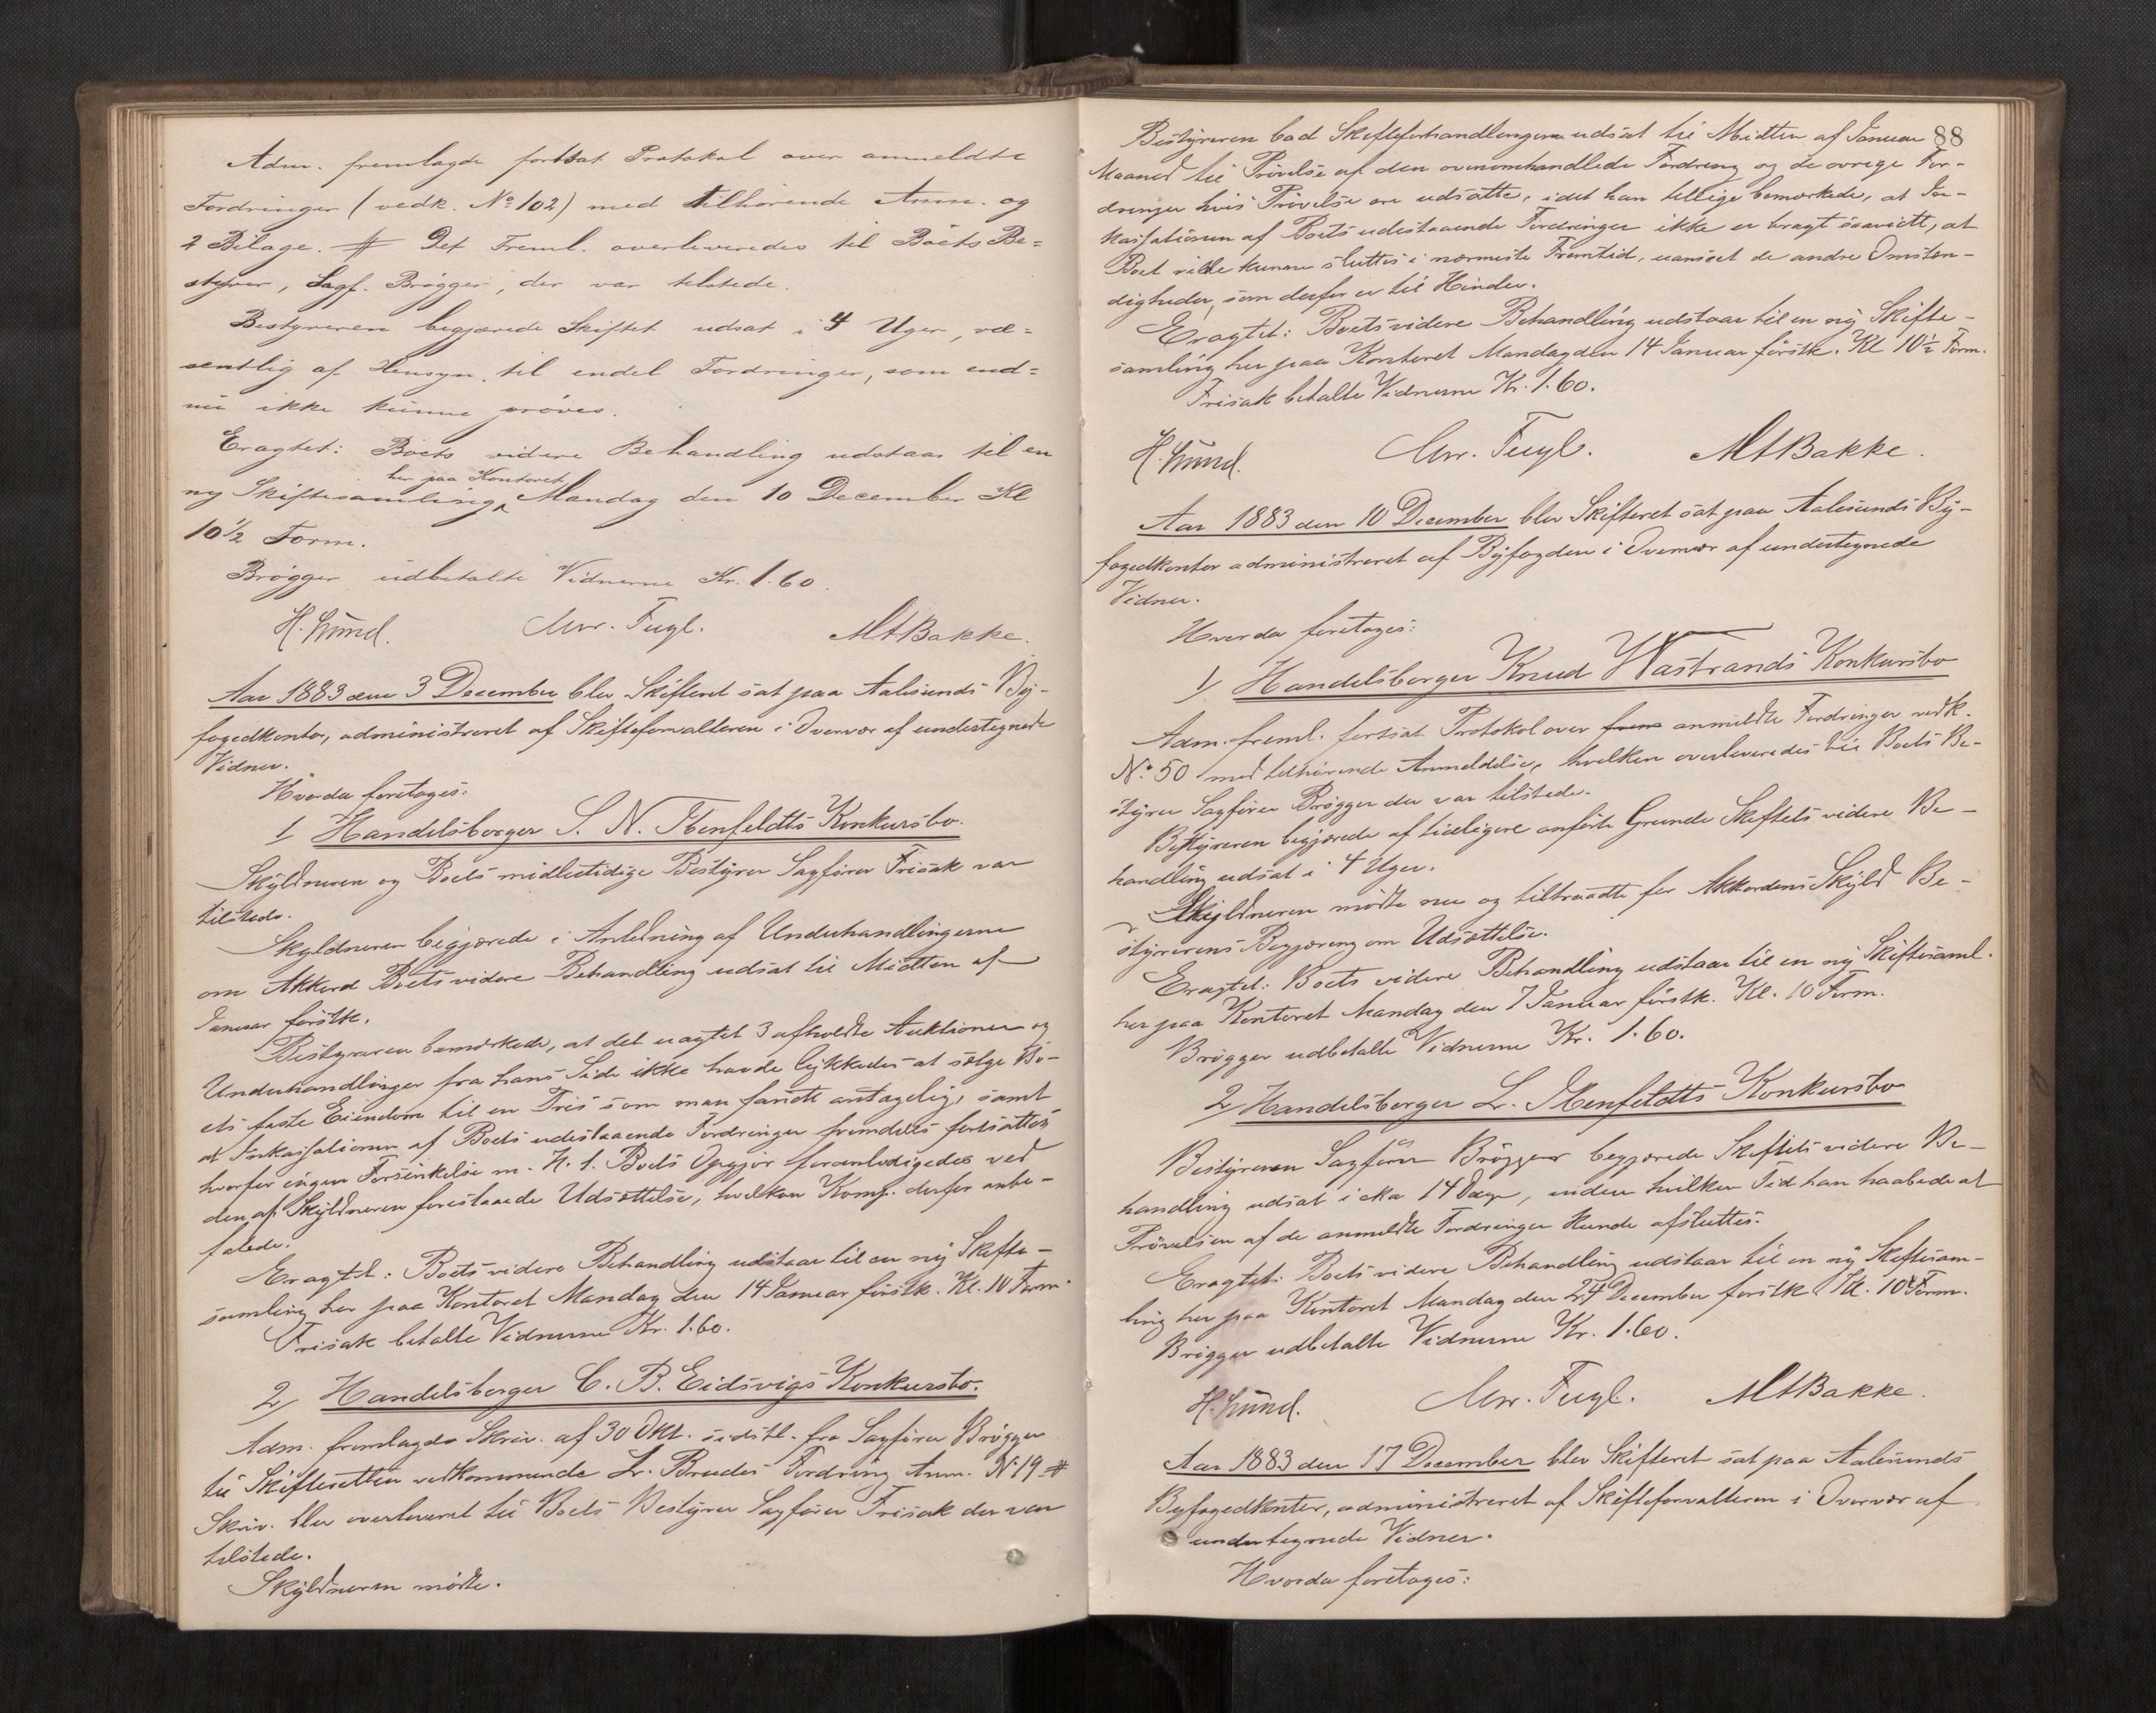 Adm. fremlagde fortsat Protokol over anmeldte
Fordringer (vedk. No 102) med tilhørende Anm. og
2 Bilage. # Det Freml. overleveredes til Boets Be=
styrer, Sagf. Brøgger, der var tilstede.
Bestyreren begjærede Skiftet udsat i 4 Uger, væ=
sentlig af Hensyn til endel Fordringer, som end=
nu ikke kunne prøves.
Eragtet: Boets videre Behandling udstaar til en
her paa Kontoret
ny Skiftesamling Mandag den 10 December Kl
10 1/2 Form.
Brøgger udbetalte Vidnerne Kr. 1.60.
H. Lund. Chr. Fugl. M A Bakke.
Aar 1883 den 3 December blev Skifteret sat paa Aalesunds By-
fogedkontor, administreret af Skifteforvalteren i Overvær af undertegnede
Vidner.
Hvorda foretages:
1/ Handelsborger S. N. Ibenfeldts Konkursbo.
Skyldneren og Boets midlertidige Bestyrer Sagfører Frisak var
tilstede.
Skyldneren begjærede i Anledning af Underhandlingerne
om Akkord Boets videre Behandling udsat til Midten af
Januar førstk.
Bestyreren bemærkede, at det uagtet 3 afholdte Auktioner og
Underhandlinger fra hans Side ikke havde lykkedes at sælge Bo-
ets faste Eiendom til en Pris som man fandt antagelig, samt
at Inkassationen af Boets udestaaende Fordringer fremdeles fortsattes
hvorfor ingen Forsinkelse m. H. t. Boets Opgjør foranledigedes ved
den af Skyldneren foreslaaede Udsættelse, hvilken Komp. derfor anbe-
falede.
Eragtet: Boets videre Behandling udstaar til en ny Skifte-
samling her paa Kontoret Mandag den 14 Januar førstk. Kl. 10 Form.
Frisak betalte Vidnerne Kr. 1.60.
2/ Handelsborger C. B. Eidsvigs Konkursbo.
Adm. fremlagde Skriv. af 30 Okt. sidstl. fra Sagfører Brøgger
til Skifteretten vedkommende L. Brudes Fordring Anm. N 19 #
Skriv. blev overleveret til Boets Bestyrer Sagfører Frisak der var
tilstede.
Skyldneren mødte.
88
Bestyreren bad Skifteforhandlingerne udsat til Midten af Januar
Maaned til Prøvelse af den ovenomhandlede Fordring og de øvrige For-
dringer hvis Prøvelse ere udsatte, idet han tillige bemærkede, at In-
kassationen af Boets udestaaende Fordringer ikke er bragt saavidt, at
Boet vilde kunne sluttes i nærmeste Fremtid, uanset de andre Omstæn-
digheder, som derfor er til Hinder.
Eragtet: Boets videre Behandling udstaar til en ny Skifte-
samling her paa Kontoret Mandag den 14 Januar førstk. Kl 10 1/2 Form.
Frisak betalte Vidnerne Kr. 1.60.
H. Lund. Chr. Fugl. M A Bakke.
Aar 1883 den 10 December blev Skifteret sat paa Aalesunds By-
fogedkontor administreret af Byfogden i Overvær af undertegnede
Vidner.
Hvorda foretages:
1/ Handelsborger Knud Wastrands Konkursbo
Adm. freml. fortsat Protokol over anmeldte Fordringer vedk.
No 50 med tilhørende Anmeldelse, hvilken overleveredes til Boets Be-
styrer Sagfører Brøgger der var tilstede.
Bestyreren begjærede af tidligere anførte Grunde Skiftets videre Be-
handling udsat i 4 Uger.
Skyldneren mødte nu og tiltraadte for Akkordens Skyld Be-
styrerens Begjæring om Udsættelse.
Eragtet: Boets videre Behandling udstaar til en ny Skiftesaml.
her paa Kontoret Mandag den 7 Januar førstk. Kl. 10 Form.
Brøgger udbetalte Vidnerne Kr. 1.60.
2/ Handelsborger L. Ibenfeldts Konkursbo
Bestyreren Sagfører Brøgger begjærede Skiftets videre Be-
handling udsat i cka 14 Dage, inden hvilken Tid han haabede at
Prøvelsen af de anmeldte Fordringer kunde afsluttes.
Eragtet: Boets videre Behandling udstaar til en ny Skiftesam-
ling her paa Kontoret Mandag den 24 December førstk. Kl. 10 Form.
Brøgger udbetalte Vidnerne Kr. 1.60.
H. Lund. Chr. Fugl. M A Bakke.
Aar 1883 den 17 December blev Skifteret sat paa Aalesunds
Byfogedkontor, administreret af Skifteforvalteren i Overvær af
undertegnede Vidner.
Hvorda foretages: